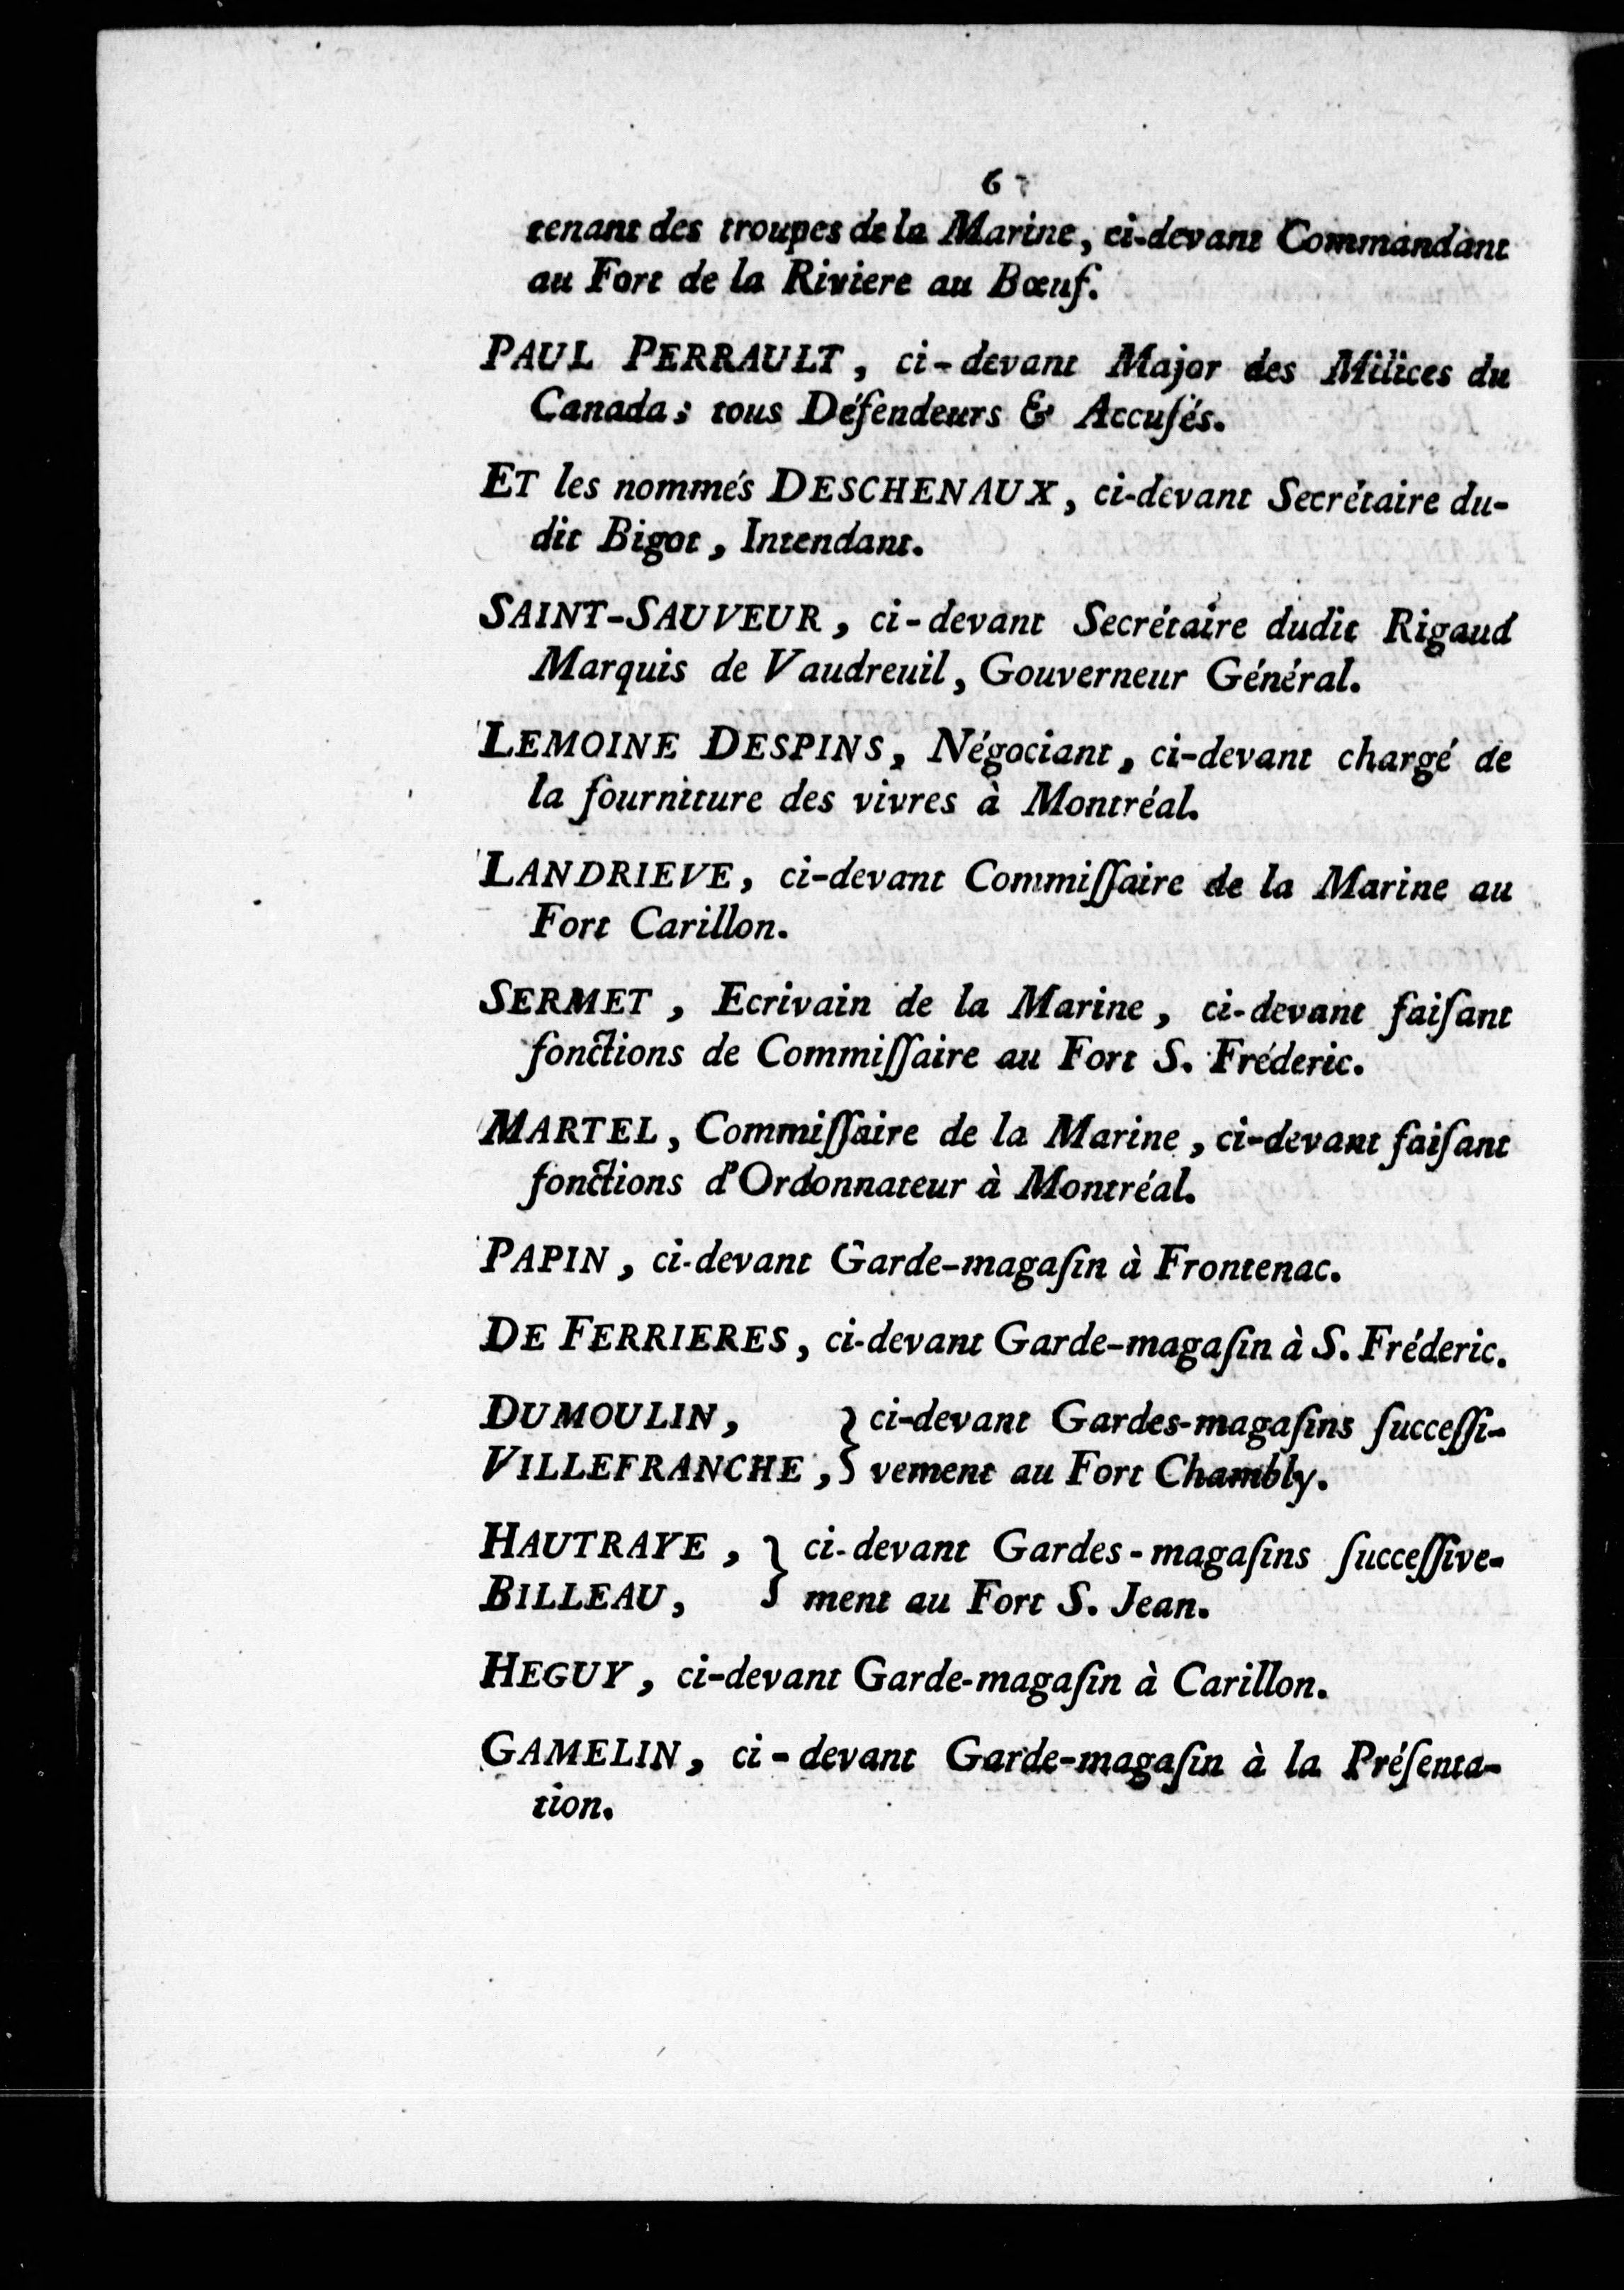 6
tenant des troupes de la Marine, ci-devant Commandant
au Fort de la Riviere au Bœuf.
PAUL PERRAULT, ci-devant Major des Milices du
Canada; tous Défendeurs & Accuſés.
ET les nommés DESCHENAUX, ci-devant Secrétaire du-
dit Bigot, Intendant.
SAINT-SAUVEUR, ci-devant Secrétaire dudit Rigaud
Marquis de Vaudreuil, Gouverneur Général.
LEMOINE DESPINS, Négociant, ci-devant chargé de
la fourniture des vivres à Montréal.
LANDRIEVE, ci-devant Commiſſaire de la Marine au
Fort Carillon.
SERMET, Ecrivain de la Marine, ci-devant faiſant
fonctions de Commiſſaire au Fort S. Fréderic.
MARTEL, Commiſſaire de la Marine, ci-devant faiſant
fonctions d'Ordonnateur à Montréal.
PAPIN, ci-devant Garde-magaſin à Frontenac.
DE FERRIERES, ci-devant Garde-magaſin à S. Fréderic.
DUMOULIN, } ci-devant Gardes-magaſins ſucceſſi-
VILLEFRANCHE, } vement au Fort Chambly.
HAUTRAYE, } ci-devant Gardes-magaſins ſucceſſive-
BILLEAU, } ment au Fort S. Jean.
HEGUY, ci-devant Garde-magaſin à Carillon.
GAMELIN, ci-devant Garde-magaſin à la Préſenta-
tion.